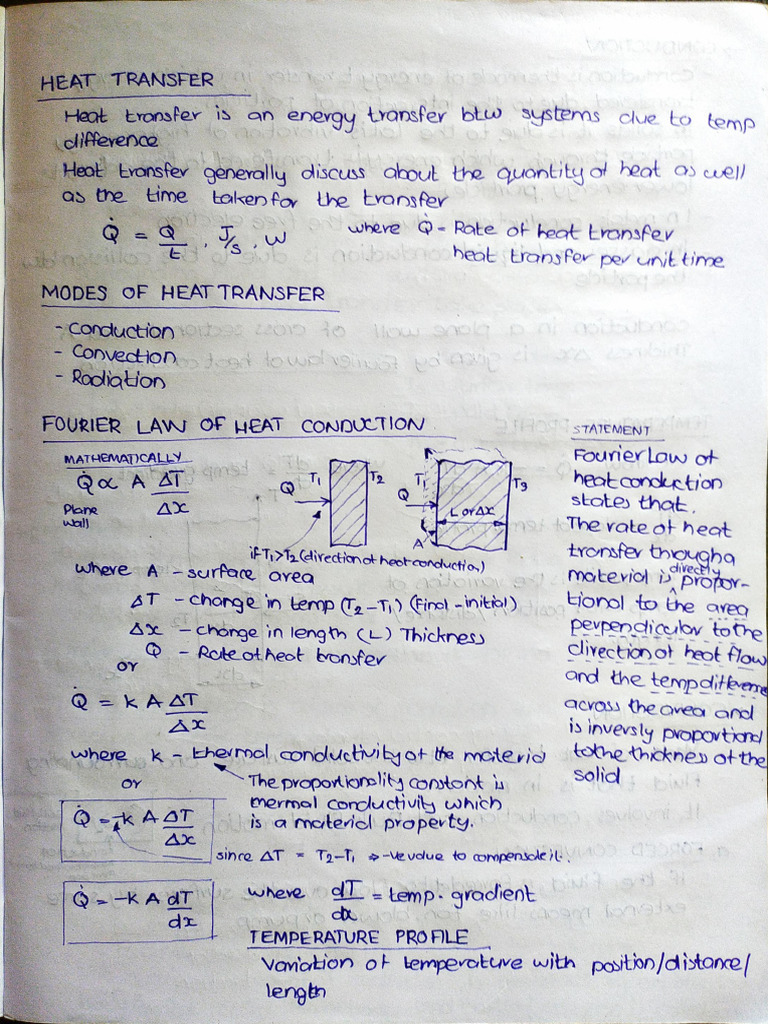 HEAT TRANSFER
Heat transfer is an energy transfer btw systems due to temp
difference
Heat transfer generally discuss about the quantity of heat as well
as the time taken for the transfer
Q̇ = Q/t , J/s , W where Q̇ - Rate of heat transfer
heat transfer per unit time
MODES OF HEAT TRANSFER
- Conduction
- Convection
- Radiation
FOURIER LAW OF HEAT CONDUCTION
MATHEMATICALLY
Q̇ ∝ A ΔT/Δx
Plane
wall
Q T₁ T₂
Q T₁ T₃
L or Δx
A
if T₁>T₂ (direction of heat conduction)
where A - surface area
ΔT - change in temp (T₂-T₁) (Final-initial)
Δx - change in length (L) Thickness
Q - Rate of heat transfer
or
Q̇ = k A ΔT/Δx
where k - thermal conductivity of the material
The proportionality constant is
thermal conductivity which
is a material property.
or
Q̇ = -k A ΔT/Δx
since ΔT = T₂-T₁ ⇒ -ve due to compensate it.
Q̇ = -k A dT/dx
where dT/dx = temp. gradient
STATEMENT
Fourier Law of
heat conduction
states that.
The rate of heat
transfer through a
material is directly propor-
tional to the area
perpendicular to the
direction of heat flow
and the temp difference
across the area and
is inversly proportional
to the thicknes of the
solid
TEMPERATURE PROFILE
Variation of temperature with position/distance/
length